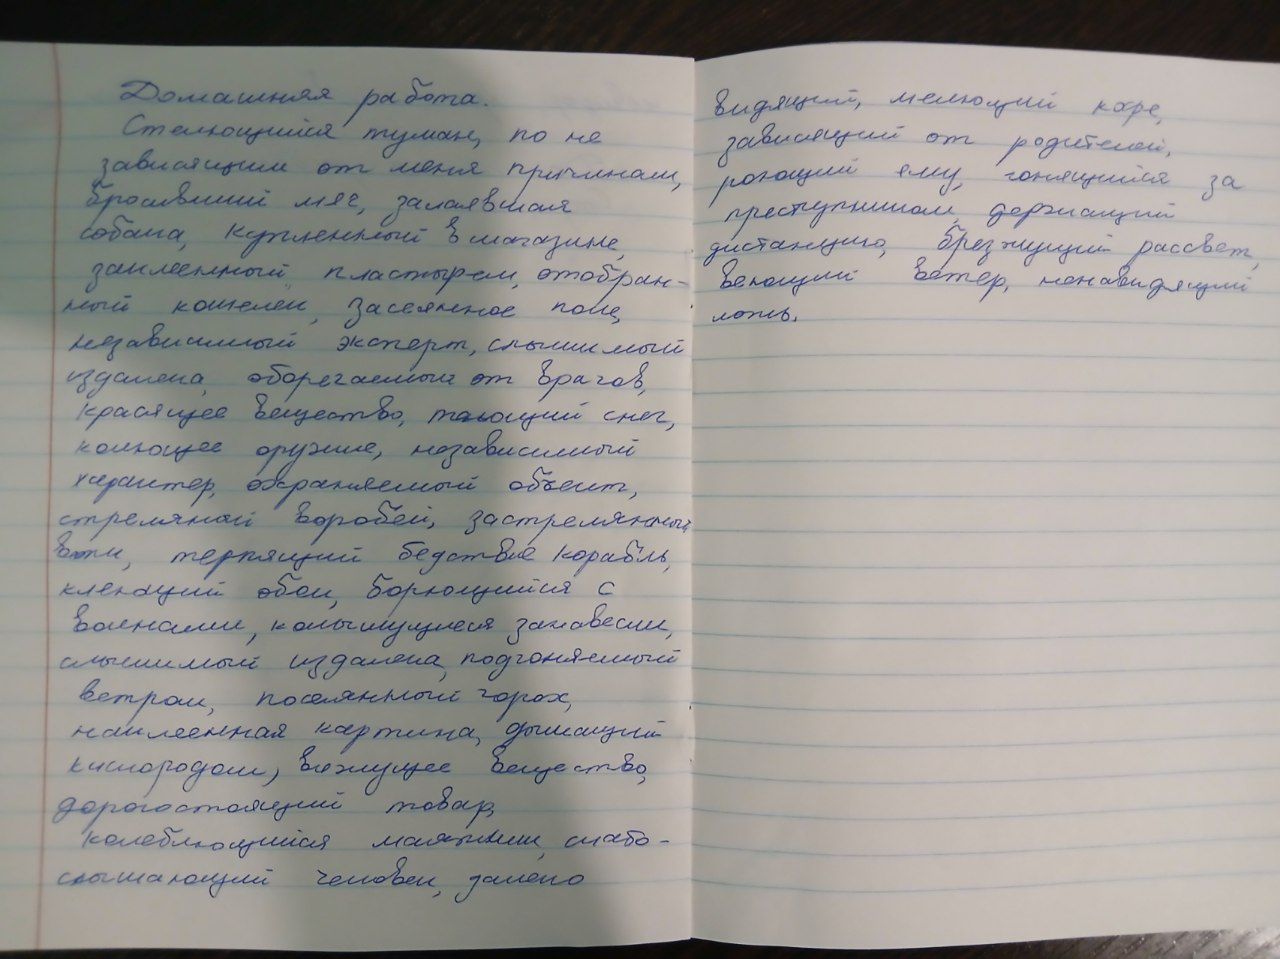 Домашняя работа.
Стелющийся туман, по не
зависящим от меня причинам,
бросивший мяч, залаявшая
собака, купленный в магазине,
заклеенный пластырем, отобран-
ный кошелёк, засеянное поле,
независимый эксперт, слышимый
издалека, оберегаемый от врагов,
красящее вещество, тающий снег,
колющее оружие, независимый
характер, охраняемый объект,
стреляный воробей, застрелянный
волк, терпящий бедствие корабль,
клеющий обои, борющийся с
волнами, колышущиеся занавески,
слышимый издалека, подгоняемый
ветром, посеянный горох,
наклеенная картина, дышащий
кислородом, вяжущее вещество,
дорогостоящий товар,
колеблющийся маятник, слабо-
слышающий человек, далеко
видящий, мелющий кофе,
зависящий от родителей,
роющий яму, гонящийся за
преступником, держащий
дистанцию, брезжущий рассвет,
веющий ветер, ненавидящий
ложь.